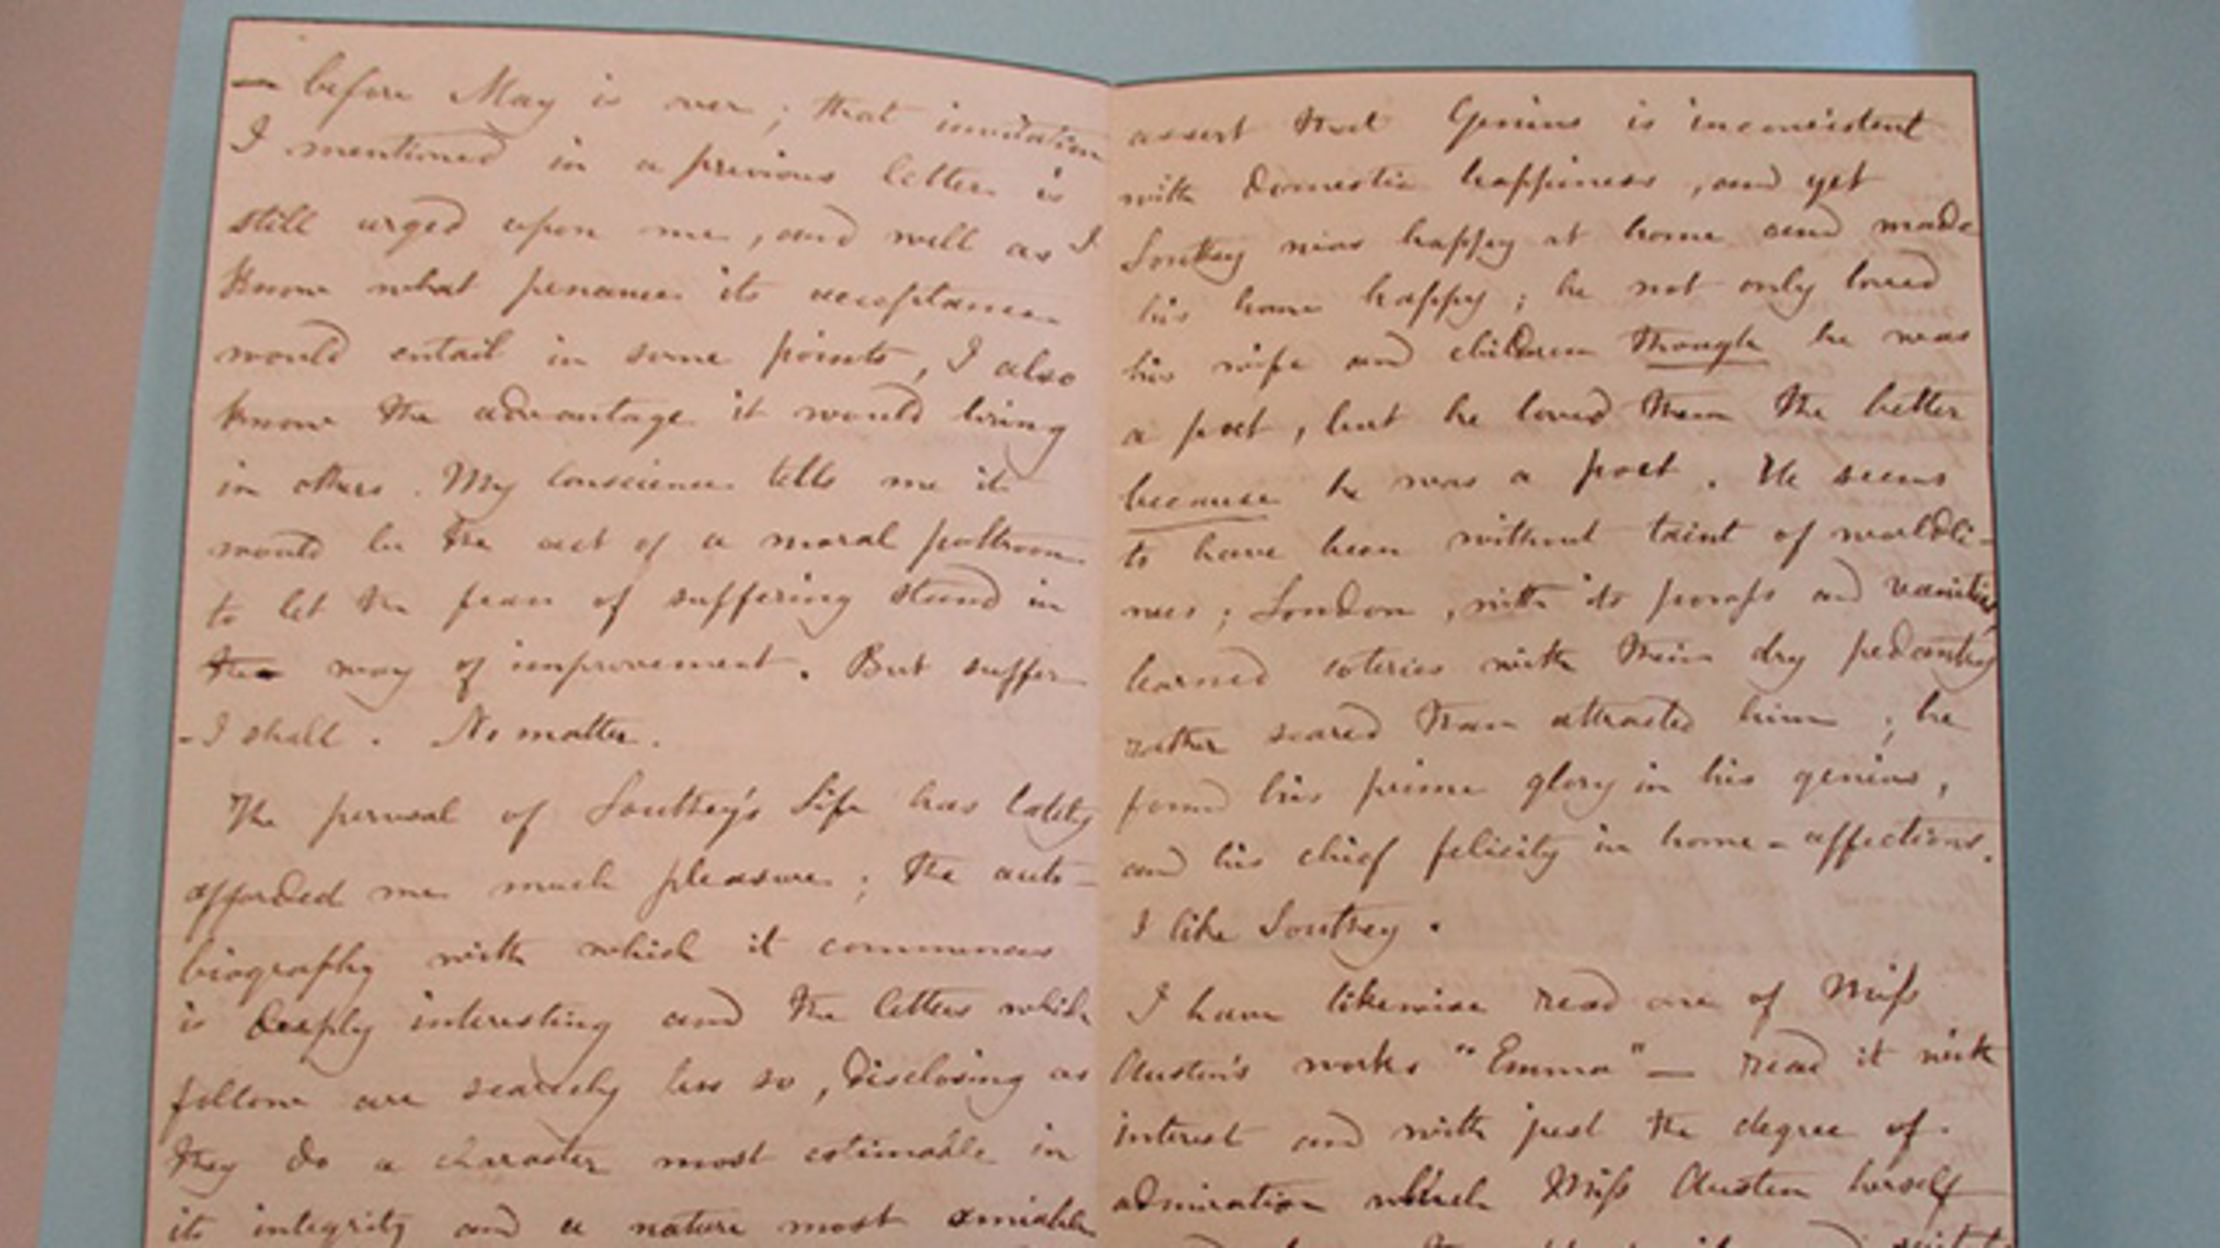 — before May is over; that invitation
I mentioned in a previous letter is
still urged upon me, and well as I
know what penance its acceptance
would entail in some points, I also
know the advantage it would bring
in others. My conscience tells me it
would be the act of a moral poltroon
to let the fear of suffering stand in
the way of improvement. But suffer
- I shall. No matter.
The perusal of Southey's Life has lately
afforded me much pleasure; the auto-
biography with which it commences
is deeply interesting and the letters which
follow are scarcely less so, disclosing as
they do a character most estimable in
its integrity and a nature most amiable
assert that Genius is inconsistent
with domestic happiness, and yet
Southey was happy at home and made
his home happy; he not only loved
his wife and children though he was
a poet, but he loved them the better
because he was a poet. He seems
to have been without taint of worldli-
ness; London, with its pomps and vanities,
learned coteries with their dry pedantry
rather scared than attracted him; he
found his prime glory in his genius,
and his chief felicity in home-affections.
I like Southey.
I have likewise read one of Miss
Austen's works "Emma" — read it with
interest and with just the degree of
admiration which Miss Austen herself